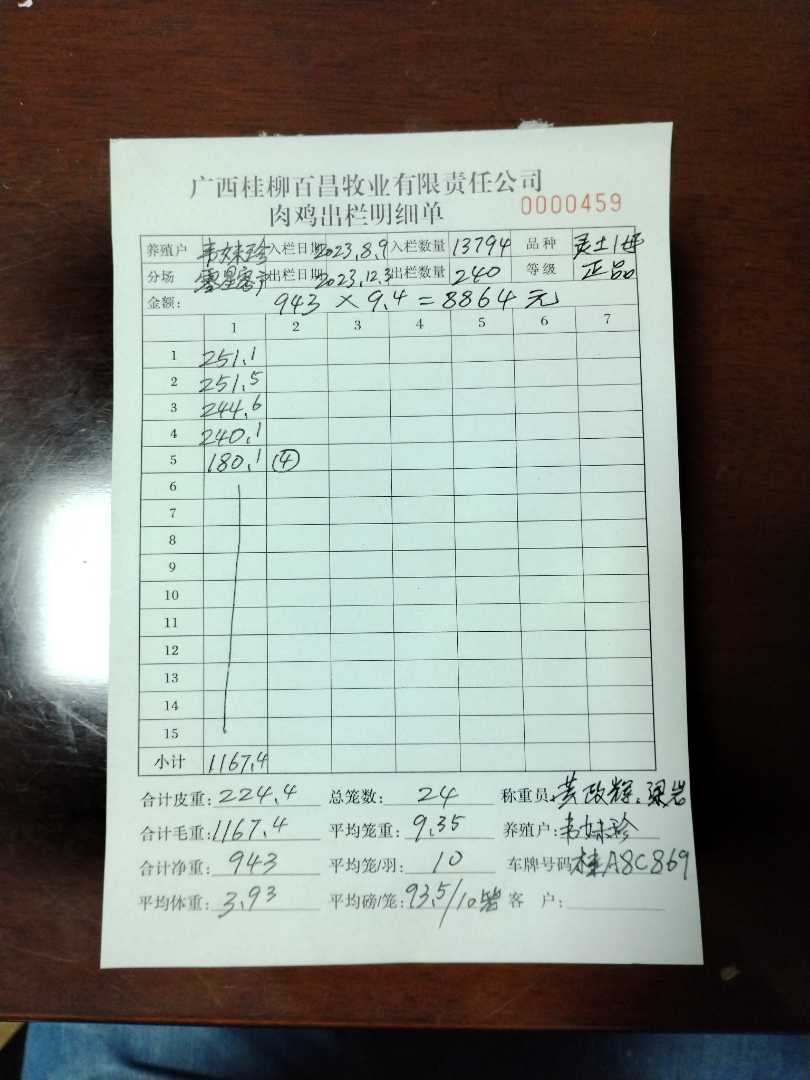 广西桂柳百昌牧业有限责任公司
肉鸡出栏明细单 0000459
养殖户 韦妹珍 入栏日期 2023.8.9 入栏数量 13794 品种 灵土1母
分场 零星客户 出栏日期 2023.12.3 出栏数量 240 等级 正品
金额: 943 × 9.4 = 8864 元
1 2 3 4 5 6 7
1 251.1
2 251.5
3 244.6
4 240.1
5 180.1 ④
6
7
8
9
10
11
12
13
14
15
小计 1167.4
合计皮重: 224.4 总笼数: 24 称重员: 黄政辉、梁岩
合计毛重: 1167.4 平均笼重: 9.35 养殖户: 韦妹珍
合计净重: 943 平均笼/羽: 10 车牌号码 桂A8C869
平均体重: 3.93 平均磅/笼: 93.5/10 客 户: